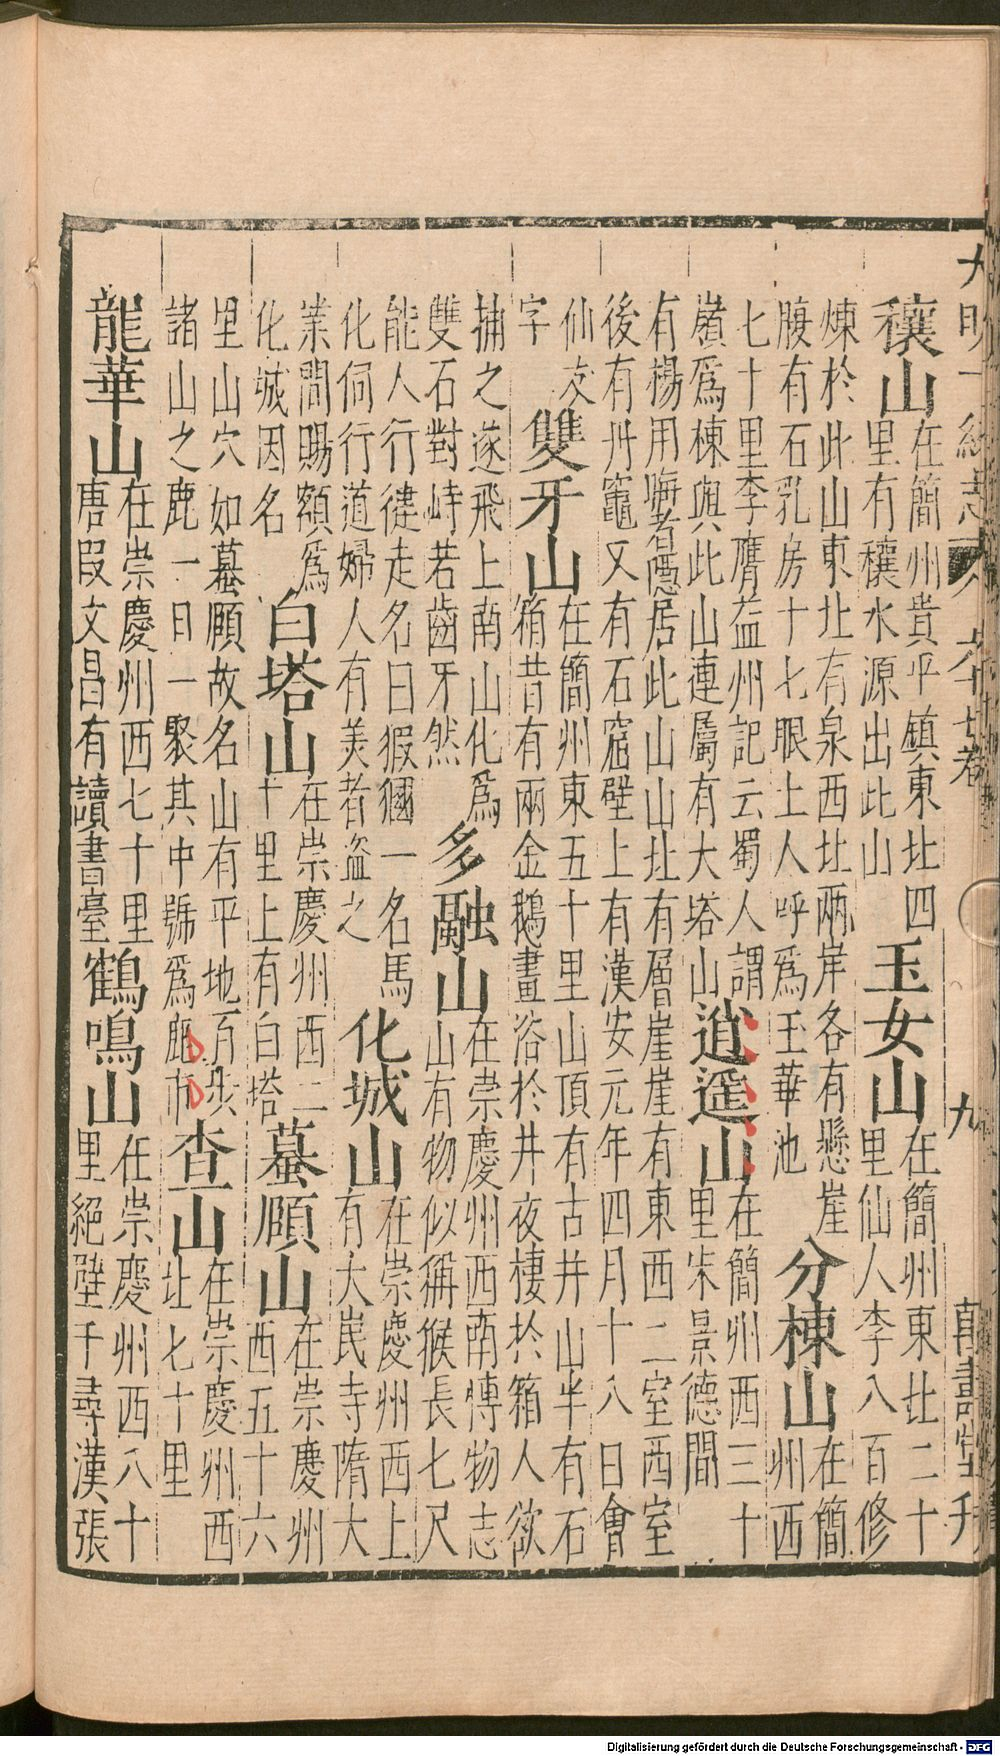 大明一統志
九
穰山
在簡州貴平鎮東北四
里有穰水源出此山
玉女山
在簡州東北二十
里仙人李八百修
煉於此山東北有泉西北兩岸各有懸崖
腹有石乳房十七眼上人呼為玉華池
分棟山
在簡
州西
七十里李膺益州記云蜀人謂
嶺爲棟與此山連屬有大塔山
逍遥山
在簡州西三十
里宋景德間
有楊用晦者隱居此山山北有層崖崖有東西二室西室
後有丹竈又有石窟壁上有漢安元年四月十八日會
仙友
字
雙牙山
在簡州東五十里山頂有古井山半有石
箱昔有兩金鵝晝浴於井夜棲於箱人欲
捕之遂飛上南山化爲
雙石對峙若齒牙然
多融山
在崇慶州西南博物志
山有物似獼猴長七尺
能人行健走名曰猳玃一名馬
化伺行道婦人有美者盜之
化城山
在崇慶州西上
有大岷寺隋大
業間賜額爲
化城因名
白塔山
在崇慶州西二
十里上有白塔
蟇頤山
在崇慶州
西五十六
里山穴如蟇頤故名山有平地百步
諸山之鹿一日一聚其中號爲鹿市
查山
在崇慶州西
北七十里
龍華山
在崇慶州西七十里
唐段文昌有讀書臺
鶴鳴山
在崇慶州西八十
里絕壁千尋漢張
Digitalisierung gefördert durch die Deutsche Forschungsgemeinschaft - DFG